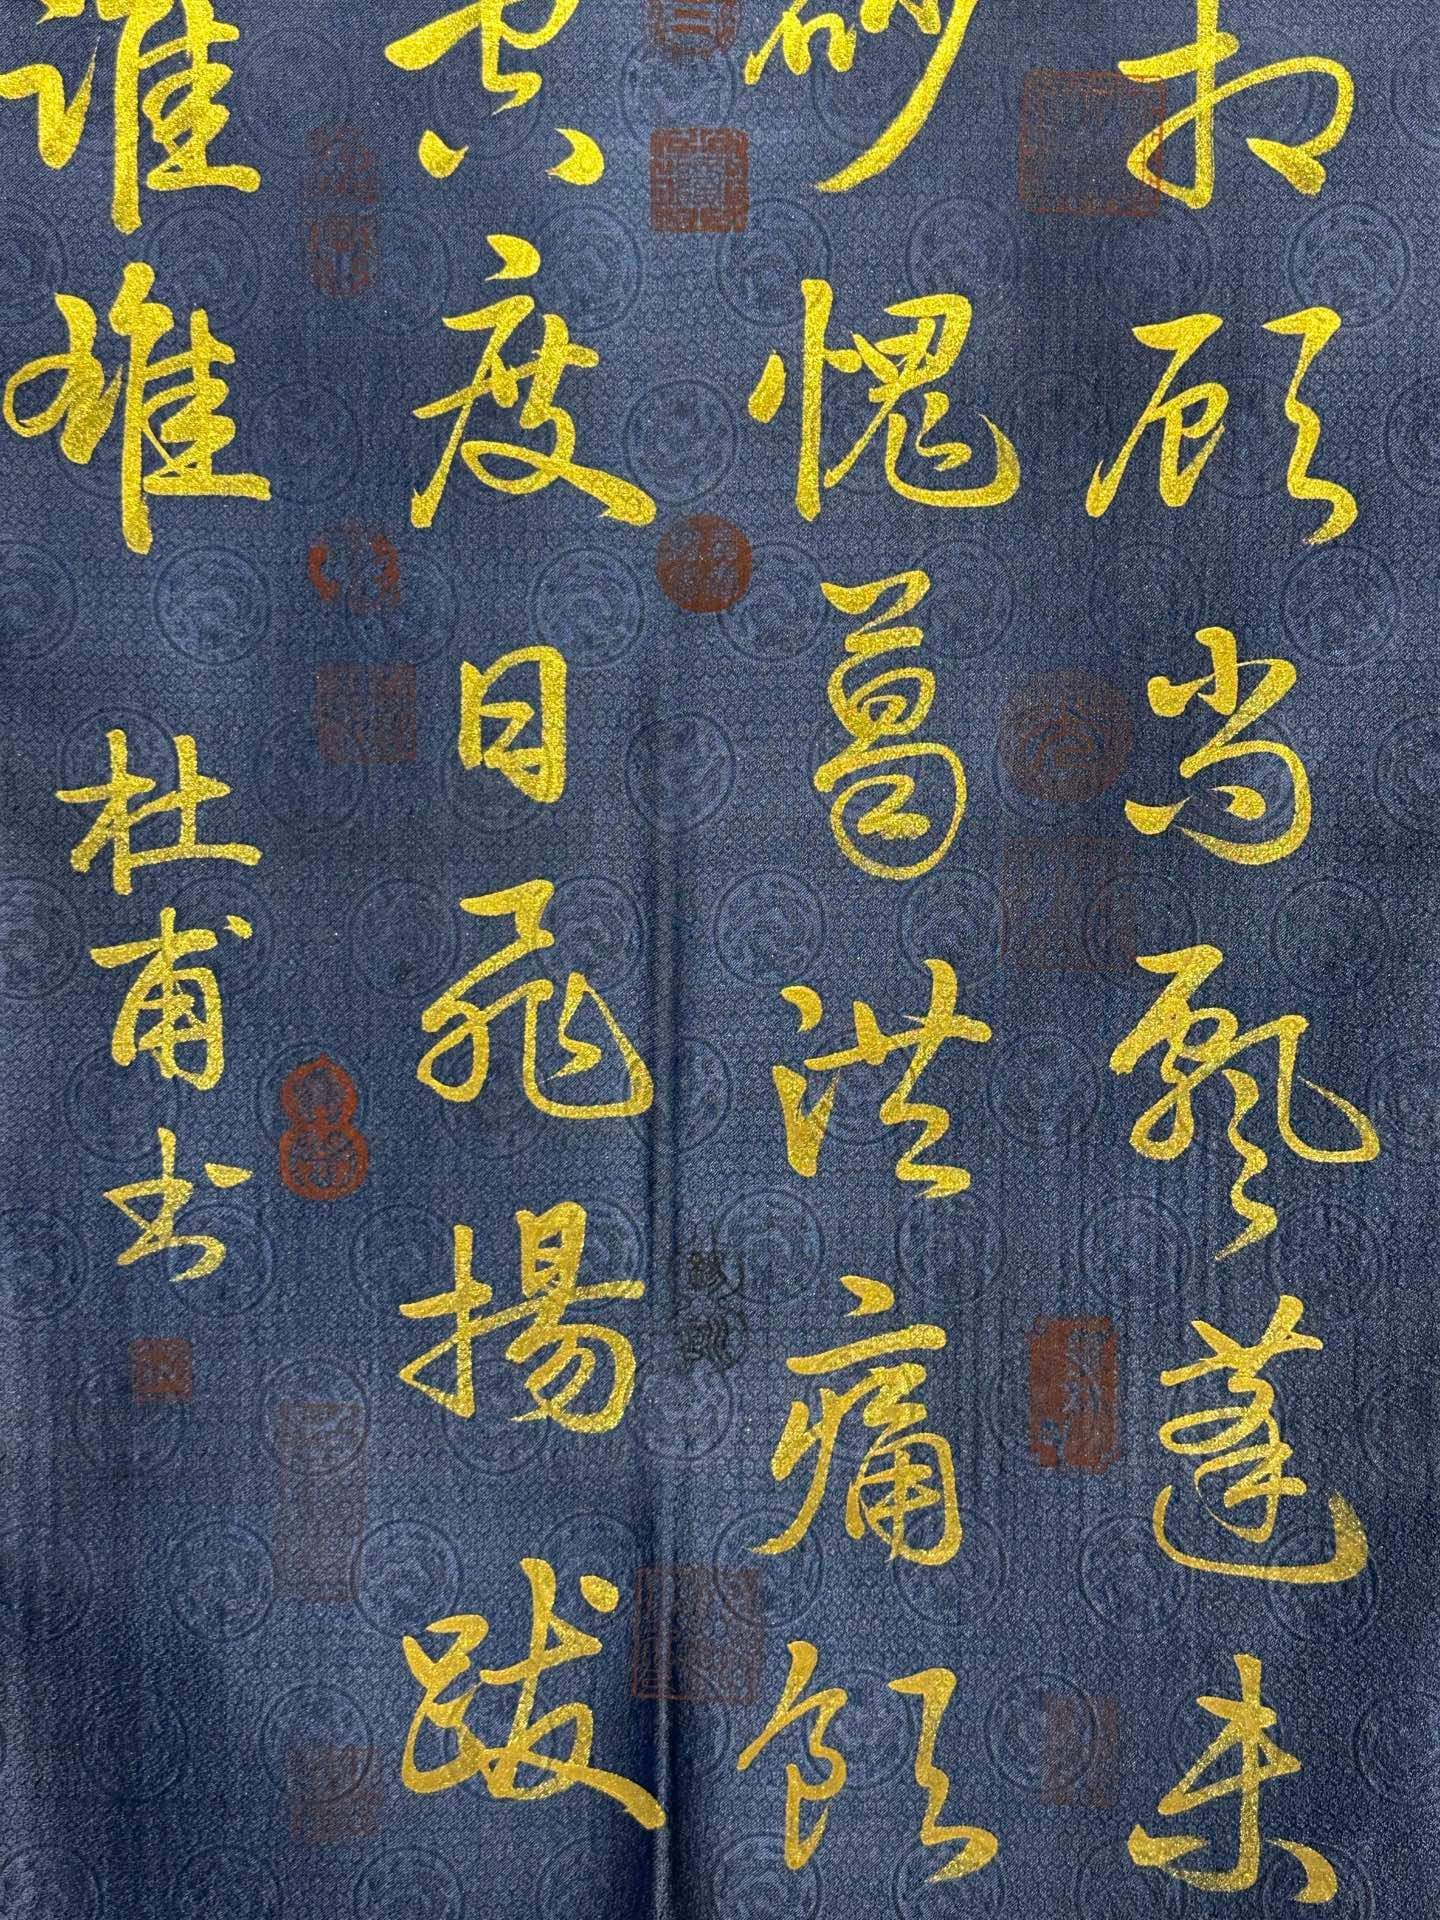 相顾尚飘蓬未
砂愧葛洪痛饮
空度日飞扬跋
谁雄
杜甫书